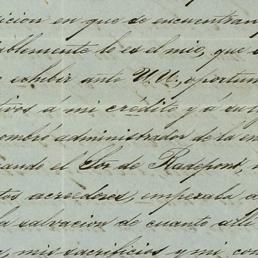 sicion en que se encuentran
blemente lo es el mio, que
exhibir ante U.U., oportun
tivos á mi crédito y á su
ombró administrador de la
ando el Sór de Radepont,
tos acredores, empezaba
la salvacion de cuanto all
, mis sacrificios y mi con